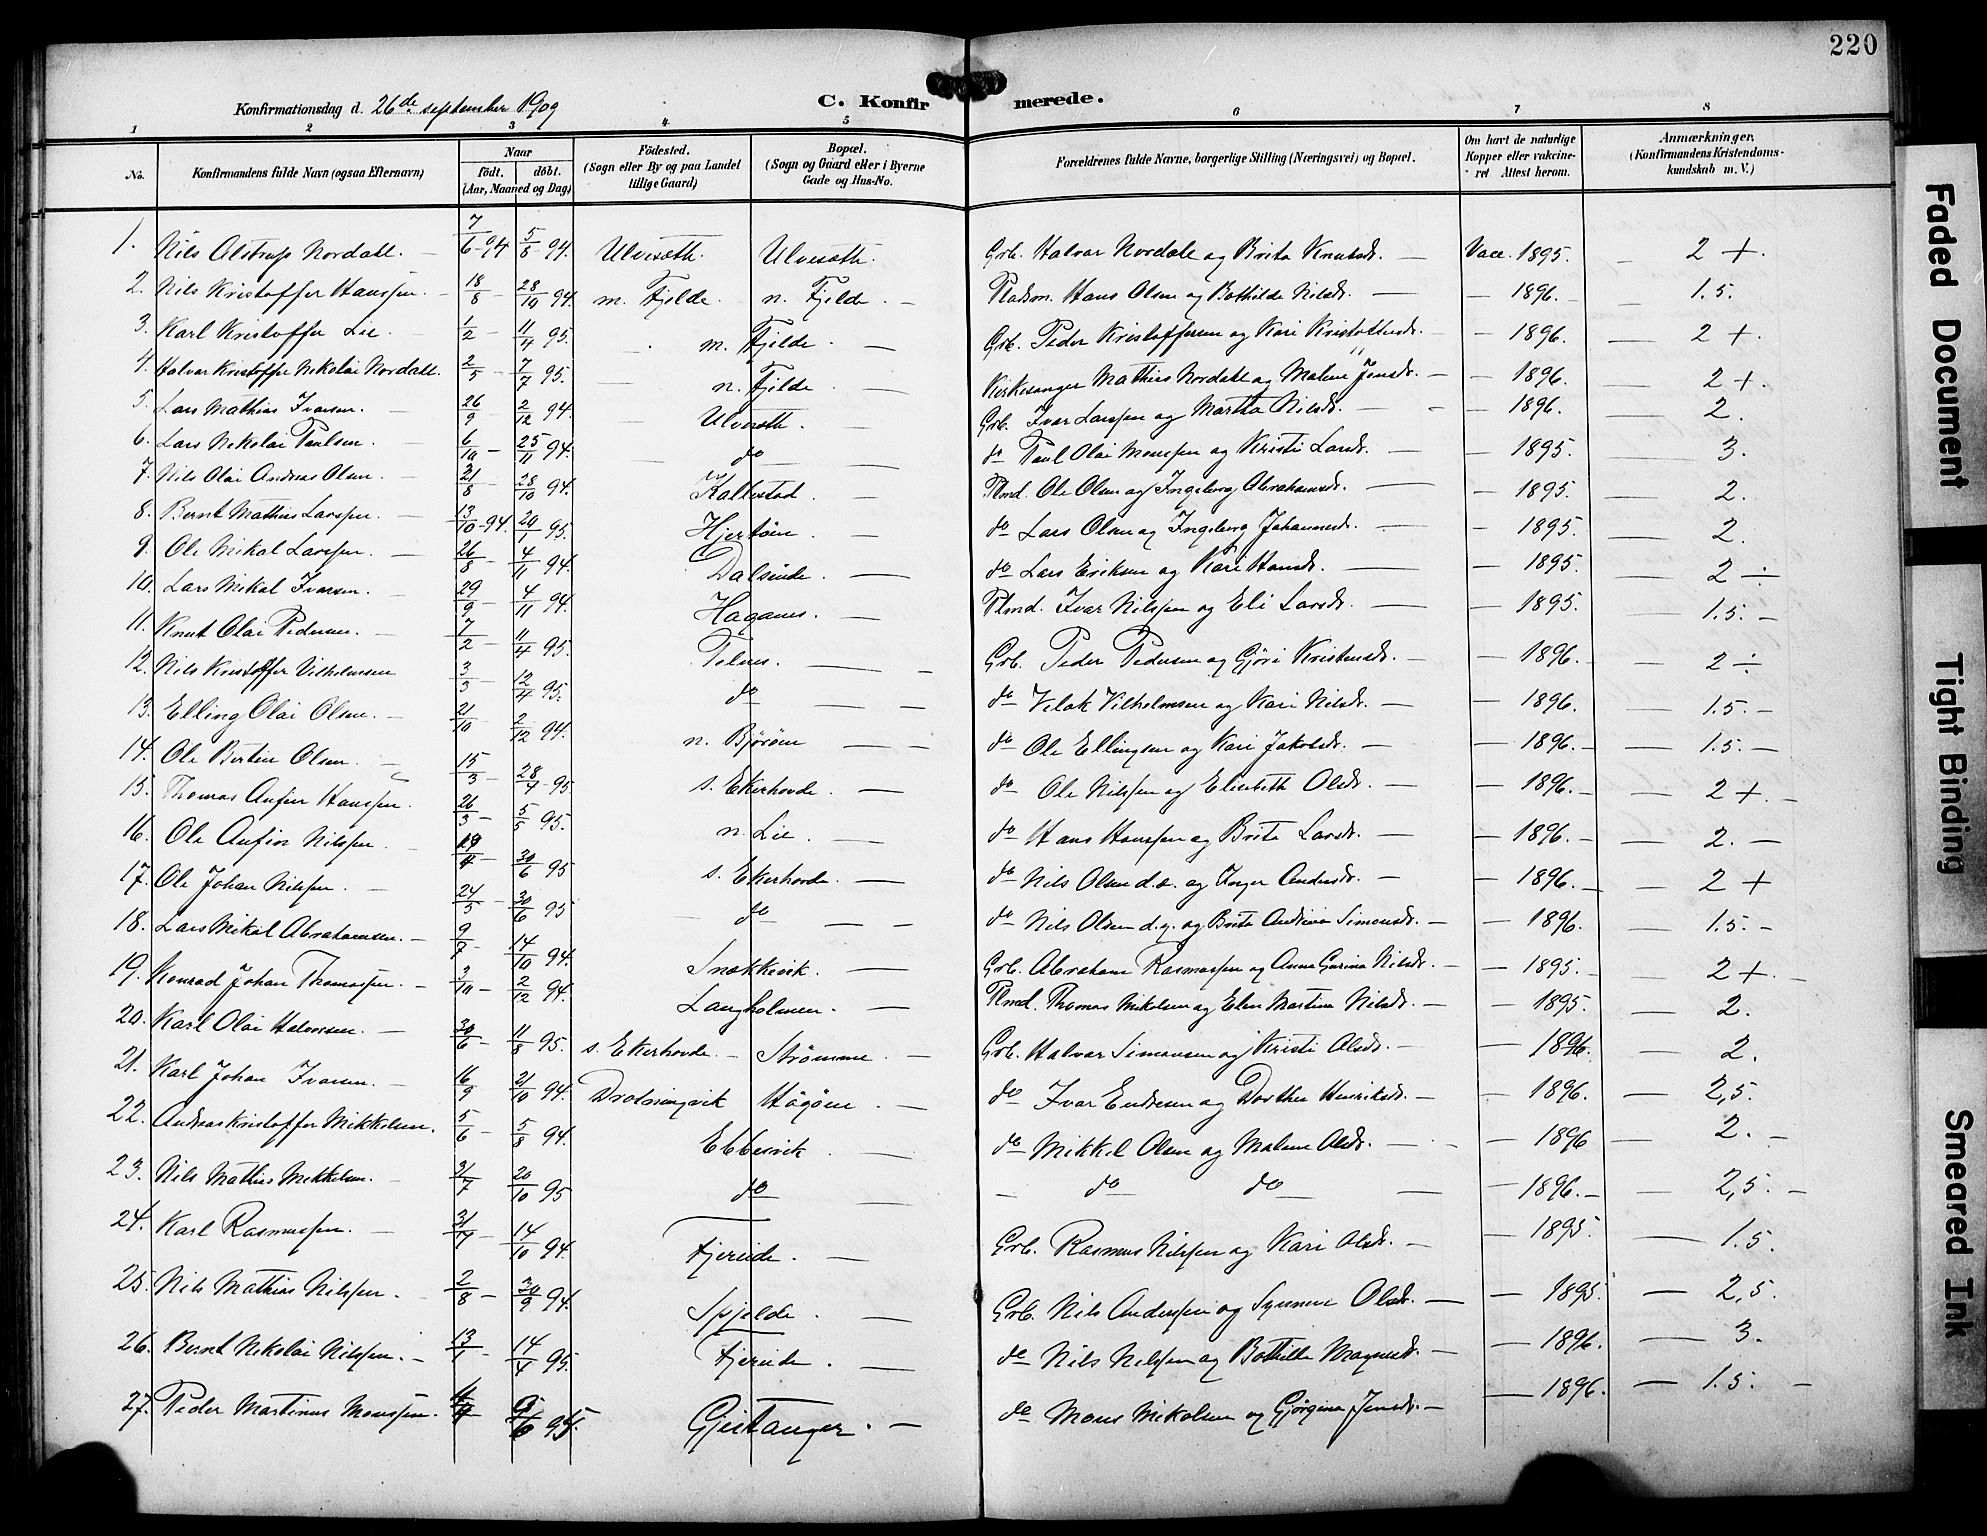 220
Konfirmationsdag d. 26de september 1909 C. Konfirmerede.
1 2 3 4 5 6 7 8
No. Konfirmandens fulde Navn (ogsaa Efternavn) Naar født. døbt. (Aar, Maaned og Dag) Födested. (Sogn eller By og paa Landet tillige Gaard) Bopæl. (Sogn og Gaard eller i Byerne Gade og Hus-No. Forældrenes fulde Navne, borgerlige Stilling (Næringsvei) og Bopæl. Om havt de naturlige Kopper eller vakcineret. Attest herom. Anmærkninger. (Konfirmandens Kristendomskundskab m. V.)
1. Nils Alstrup Nordahl. 7/6-94 5/8-94. Ulvesæth. Ulvesæth. Grb. Halvar Nordale og Brita Knutsdr. Vacc. 1895. 2 +
2. Nils Kristoffer Hanssen. 18/8 28/10 94. m. Fjelde. n. Fjelde. Pladsm. Hans Olsen og Bothilde Nilsdr. 1896. 1.5.
3. Karl Kristoffer Lie. 1/2 11/4 95. m. Fjelde. Grb. Peder Kristoffersen og Kari Kristoffersdr. 1896. 2 +.
4. Halvar Kristoffer Nikolai Nordahl. 2/5 7/7 95. n. Fjelde. Kirkesanger Mathias Nordahl og Malene Jensdr. 1896. 2 +.
5. Lars Mathias Ivarsen. 26/9 2/12 94. Ulvesæth. Grb. Ivar Larssen og Martha Nilsdr. 1896. 2.
6. Lars Nikolai Paulsen. 6/10 25/11 94. do do Paul Olai Monssen og Kristi Larsdr. 1895. 3.
7. Nils Olai Andreas Olsen. 21/8 28/10 94. Kallestad. Plmd. Ole Olsen og Ingeborg Abrahamsdr. 1895. 2.
8. Bernt Mathias Larssen. 13/10-94. 20/1 95. Hjertøen. do Lars Olsen og Ingeborg Johannesdr. 1895. 2.
9. Ole Mikal Larssen. 26/8 4/11 94. Dalseide. do Lars Eriksen og Kari Hansdr. 1895. 2 ÷
10. Lars Mikal Ivarsen. 29/9 4/11 94. Haganes. Plmd. Ivar Nilssen og Eli Larsdr. 1895. 1.5.
11. Knut Olai Pedersen. 7/2 11/4 95. Telnes. Grb. Peder Pedersen og Gjøri Kristensdr. 1896. 2 ÷
12. Nils Kristoffer Vilhelmsen 3/3 12/4 95. do do Velak Vilhelmsen og Kari Nilsdr. 1896. 1.5.
13. Elling Olai Olsen. 21/10 2/12 94. n. Bjørøen do Ole Ellingsen og Kari Jakobsdr. 1896. 1.5.
14. Ole Bertin Olsen. 15/3 28/4 95 s. Ekerhovde. do Ole Nilssen og Elisabeth Olsdr. 1896. 2 +.
15. Thomas Anfin Hanssen. 26/3 5/5 95. n. Lie. do Hans Hanssen og Brita Larsdr. 1896. 2.
16. Ole Anfin Nilssen. 19/4 30/6 95 s. Ekerhovde. do Nils Olsen d.e. og Inger Andersdr. 1896. 2 +
17. Ole Johan Nilssen. 24/5 30/6 95 do do Nils Olsen d.y. og Brita Andrina Simonsdr. 1896. 1.5.
18. Lars Mikal Abrahamsen. 9/7 14/10 94. Snekkevik. Grb. Abraham Rasmussen og Anna Gurina Nilsdr. 1895. 2 +.
19. Konrad Johan Thomassen. 3/10 2/12 94. Langholmen. Plmd. Thomas Mikalsen og Elen Martina Nilsdr. 1895. 2.
20. Karl Olai Halvorsen. 30/6 11/8 95. s. Ekerhovde. Strømme. Grb. Halvar Simonsen og Kristi Olsdr. 1896. 2.
21. Karl Johan Ivarsen. 16/9 21/10 94. Drotningvik Hågøen. do Ivar Endresen og Dorthea Henriksdr. 1896. 2,5.
22. Andreas Kristoffer Mikkelsen. 5/6 5/8 94. Ebbesvik. do Mikkel Olsen og Malene Olsdr. 1896 2.
23. Nils Mathias Mikkelsen. 31/7 20/10 95 do do do 1896. 2,5.
24. Karl Rasmussen. 31/7 14/10 94. Fjereide. Grb. Rasmus Nilssen og Kari Olsdr. 1895. 1.5.
25. Nils Mathias Nilssen. 2/8 30/9 94. Spjelde. Grb. Nils Anderssen og Synneve Olsdr. 1895. 2,5.
26. Bernt Nikolai Nilssen. 13/1 14/4 95. Fjereide. do Nils Nilssen og Bothilde Magnesdr. 1896. 3.
27. Peder Martinus Monssen. 11/4 9/6 95. Gjeitanger. do Mons Mikalsen og Gjørgina Jensdr. 1896. 1.5.
Faded Document
Tight Binding
Smeared Ink